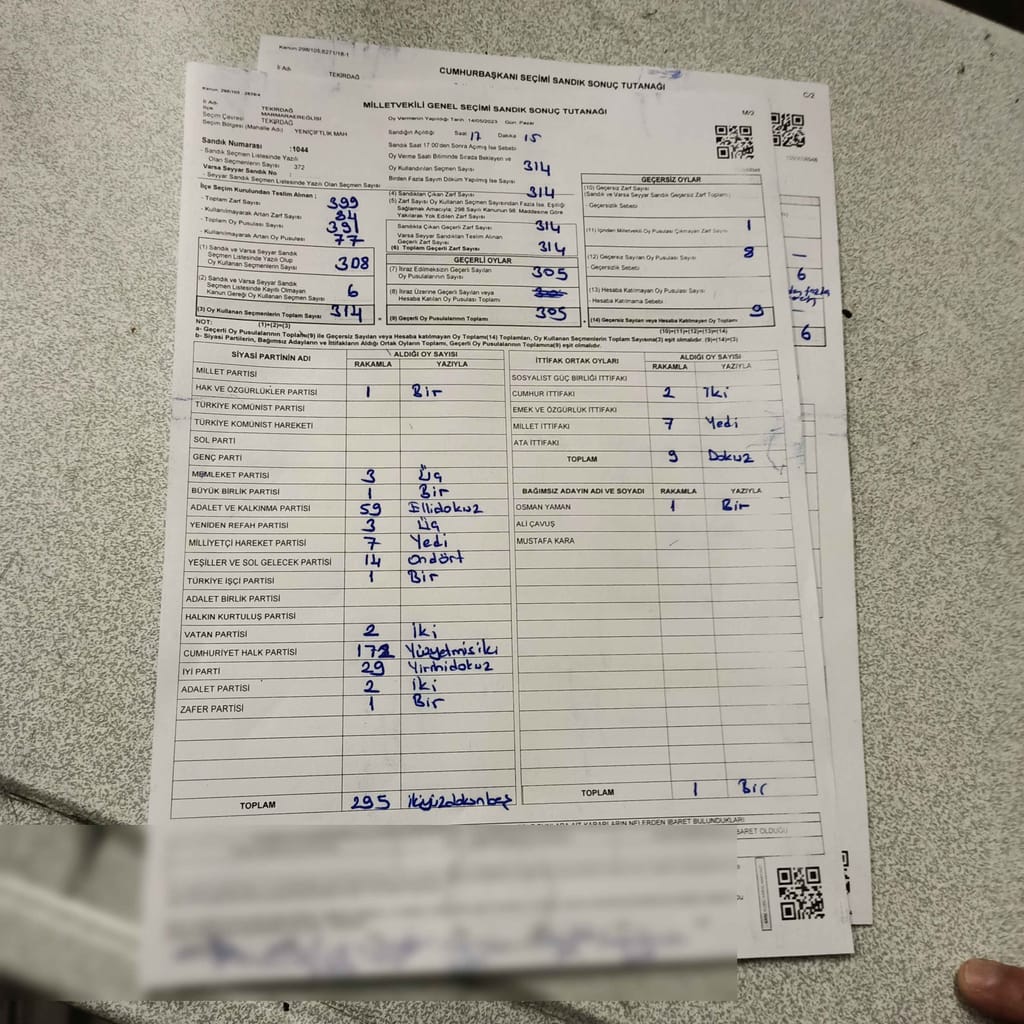 Kanun:298/105,6271/18-1
İl Adı TEKİRDAĞ
CUMHURBAŞKANI SEÇİMİ SANDIK SONUÇ TUTANAĞI
C/2
İl Adı TEKİRDAĞ
İlçe MARMARAEREĞLİSİ
Seçim Çevresi TEKİRDAĞ
Seçim Bölgesi (Mahalle Adı) YENİÇİFTLİK MAH
MİLLETVEKİLİ GENEL SEÇİMİ SANDIK SONUÇ TUTANAĞI
M/2
Oy Vermenin Yapıldığı Tarih 14/05/2023 Gün: Pazar
Sandığın Açıldığı Saat 17 Dakika 15
Sandık Saat 17:00'den Sonra Açılmış İse Sebebi
Oy Verme Saati Bitiminde Sırada Bekleyen ve
Oy Kullandırılan Seçmen Sayısı 314
Birden Fazla Sayım Döküm Yapılmış İse Sayısı
Sandık Numarası :1044
- Sandık Seçmen Listesinde Yazılı
Olan Seçmenlerin Sayısı 372
Varsa Seyyar Sandık No :
- Seyyar Sandık Seçmen Listesinde Yazılı Olan Seçmen Sayısı
İlçe Seçim Kurulundan Teslim Alınan :
- Toplam Zarf Sayısı 399
- Kullanılmayarak Artan Zarf Sayısı 84
- Toplam Oy Pusulası Sayısı 391
- Kullanılmayarak Artan Oy Pusulası 77
(1) Sandık ve Varsa Seyyar Sandık
Seçmen Listesinde Yazılı Olup
Oy Kullanan Seçmenlerin Sayısı 308
(2) Sandık ve Varsa Seyyar Sandık
Seçmen Listesinde Kayıtlı Olmayan
Kanun Gereği Oy Kullanan Seçmen Sayısı 6
(3) Oy Kullanan Seçmenlerin Toplam Sayısı 314
(1)+(2)=(3)
(4) Sandıktan Çıkan Zarf Sayısı 314
(5) Zarf Sayısı Oy Kullanan Seçmen Sayısından Fazla İse, Eşitliği
Sağlamak Amacıyla, 298 Sayılı Kanunun 98. Maddesine Göre
Yakılarak Yok Edilen Zarf Sayısı
Sandıkta Çıkan Geçerli Zarf Sayısı 314
Varsa Seyyar Sandıktan Teslim Alınan
Geçerli Zarf Sayısı
(6) Toplam Geçerli Zarf Sayısı 314
GEÇERLİ OYLAR
(7) İtiraz Edilmeksizin Geçerli Sayılan
Oy Pusulalarının Sayısı 305
(8) İtiraz Üzerine Geçerli Sayılan veya
Hesaba Katılan Oy Pusulası Toplamı
(9) Geçerli Oy Pusulalarının Toplamı 305
GEÇERSİZ OYLAR
(10) Geçersiz Zarf Sayısı
(Sandık ve Varsa Seyyar Sandık Geçersiz Zarf Toplamı)
Geçersizlik Sebebi
(11) İçinden Milletvekili Oy Pusulası Çıkmayan Zarf Sayısı 1
(12) Geçersiz Sayılan Oy Pusulası Sayısı 8
Geçersizlik Sebebi
(13) Hesaba Katılmayan Oy Pusulası Sayısı
Hesaba Katılmama Sebebi
(14) Geçersiz Sayılan veya Hesaba Katılmayan Oy Toplamı 9
(10)+(11)+(12)+(13)=(14)
NOT:
a- Geçerli Oy Pusulalarının Toplam(9) ile Geçersiz Sayılan veya Hesaba katılmayan Oy Toplam(14) Toplamları, Oy Kullanan Seçmenlerin Toplam Sayısına(3) eşit olmalıdır. (9)+(14)=(3)
b- Siyasi Partilerin, Bağımsız Adayların ve İttifakların Aldığı Ortak Oyların Toplamı, Geçerli Oy Pusulalarının Toplamına(9) eşit olmalıdır.
SİYASİ PARTİNİN ADI ALDIĞI OY SAYISI
RAKAMLA YAZIYLA
MİLLET PARTİSİ
HAK VE ÖZGÜRLÜKLER PARTİSİ 1 Bir
TÜRKİYE KOMÜNİST PARTİSİ
TÜRKİYE KOMÜNİST HAREKETİ
SOL PARTİ
GENÇ PARTİ
MEMLEKET PARTİSİ 3 Üç
BÜYÜK BİRLİK PARTİSİ 1 Bir
ADALET VE KALKINMA PARTİSİ 59 Ellidokuz
YENİDEN REFAH PARTİSİ 3 Üç
MİLLİYETÇİ HAREKET PARTİSİ 7 Yedi
YEŞİLLER VE SOL GELECEK PARTİSİ 14 Ondört
TÜRKİYE İŞÇİ PARTİSİ 1 Bir
ADALET BİRLİK PARTİSİ
HALKIN KURTULUŞ PARTİSİ
VATAN PARTİSİ 2 İki
CUMHURİYET HALK PARTİSİ 172 Yüzyetmişiki
İYİ PARTİ 29 Yirmidokuz
ADALET PARTİSİ 2 İki
ZAFER PARTİSİ 1 Bir
TOPLAM 295 ikiyüzdoksanbeş
İTTİFAK ORTAK OYLARI ALDIĞI OY SAYISI
RAKAMLA YAZIYLA
SOSYALİST GÜÇ BİRLİĞİ İTTİFAKI
CUMHUR İTTİFAKI 2 İki
EMEK VE ÖZGÜRLÜK İTTİFAKI
MİLLET İTTİFAKI 7 Yedi
ATA İTTİFAKI
TOPLAM 9 Dokuz
BAĞIMSIZ ADAYIN ADI VE SOYADI RAKAMLA YAZIYLA
OSMAN YAMAN 1 Bir
ALİ ÇAVUŞ
MUSTAFA KARA
TOPLAM 1 Bir
6
6